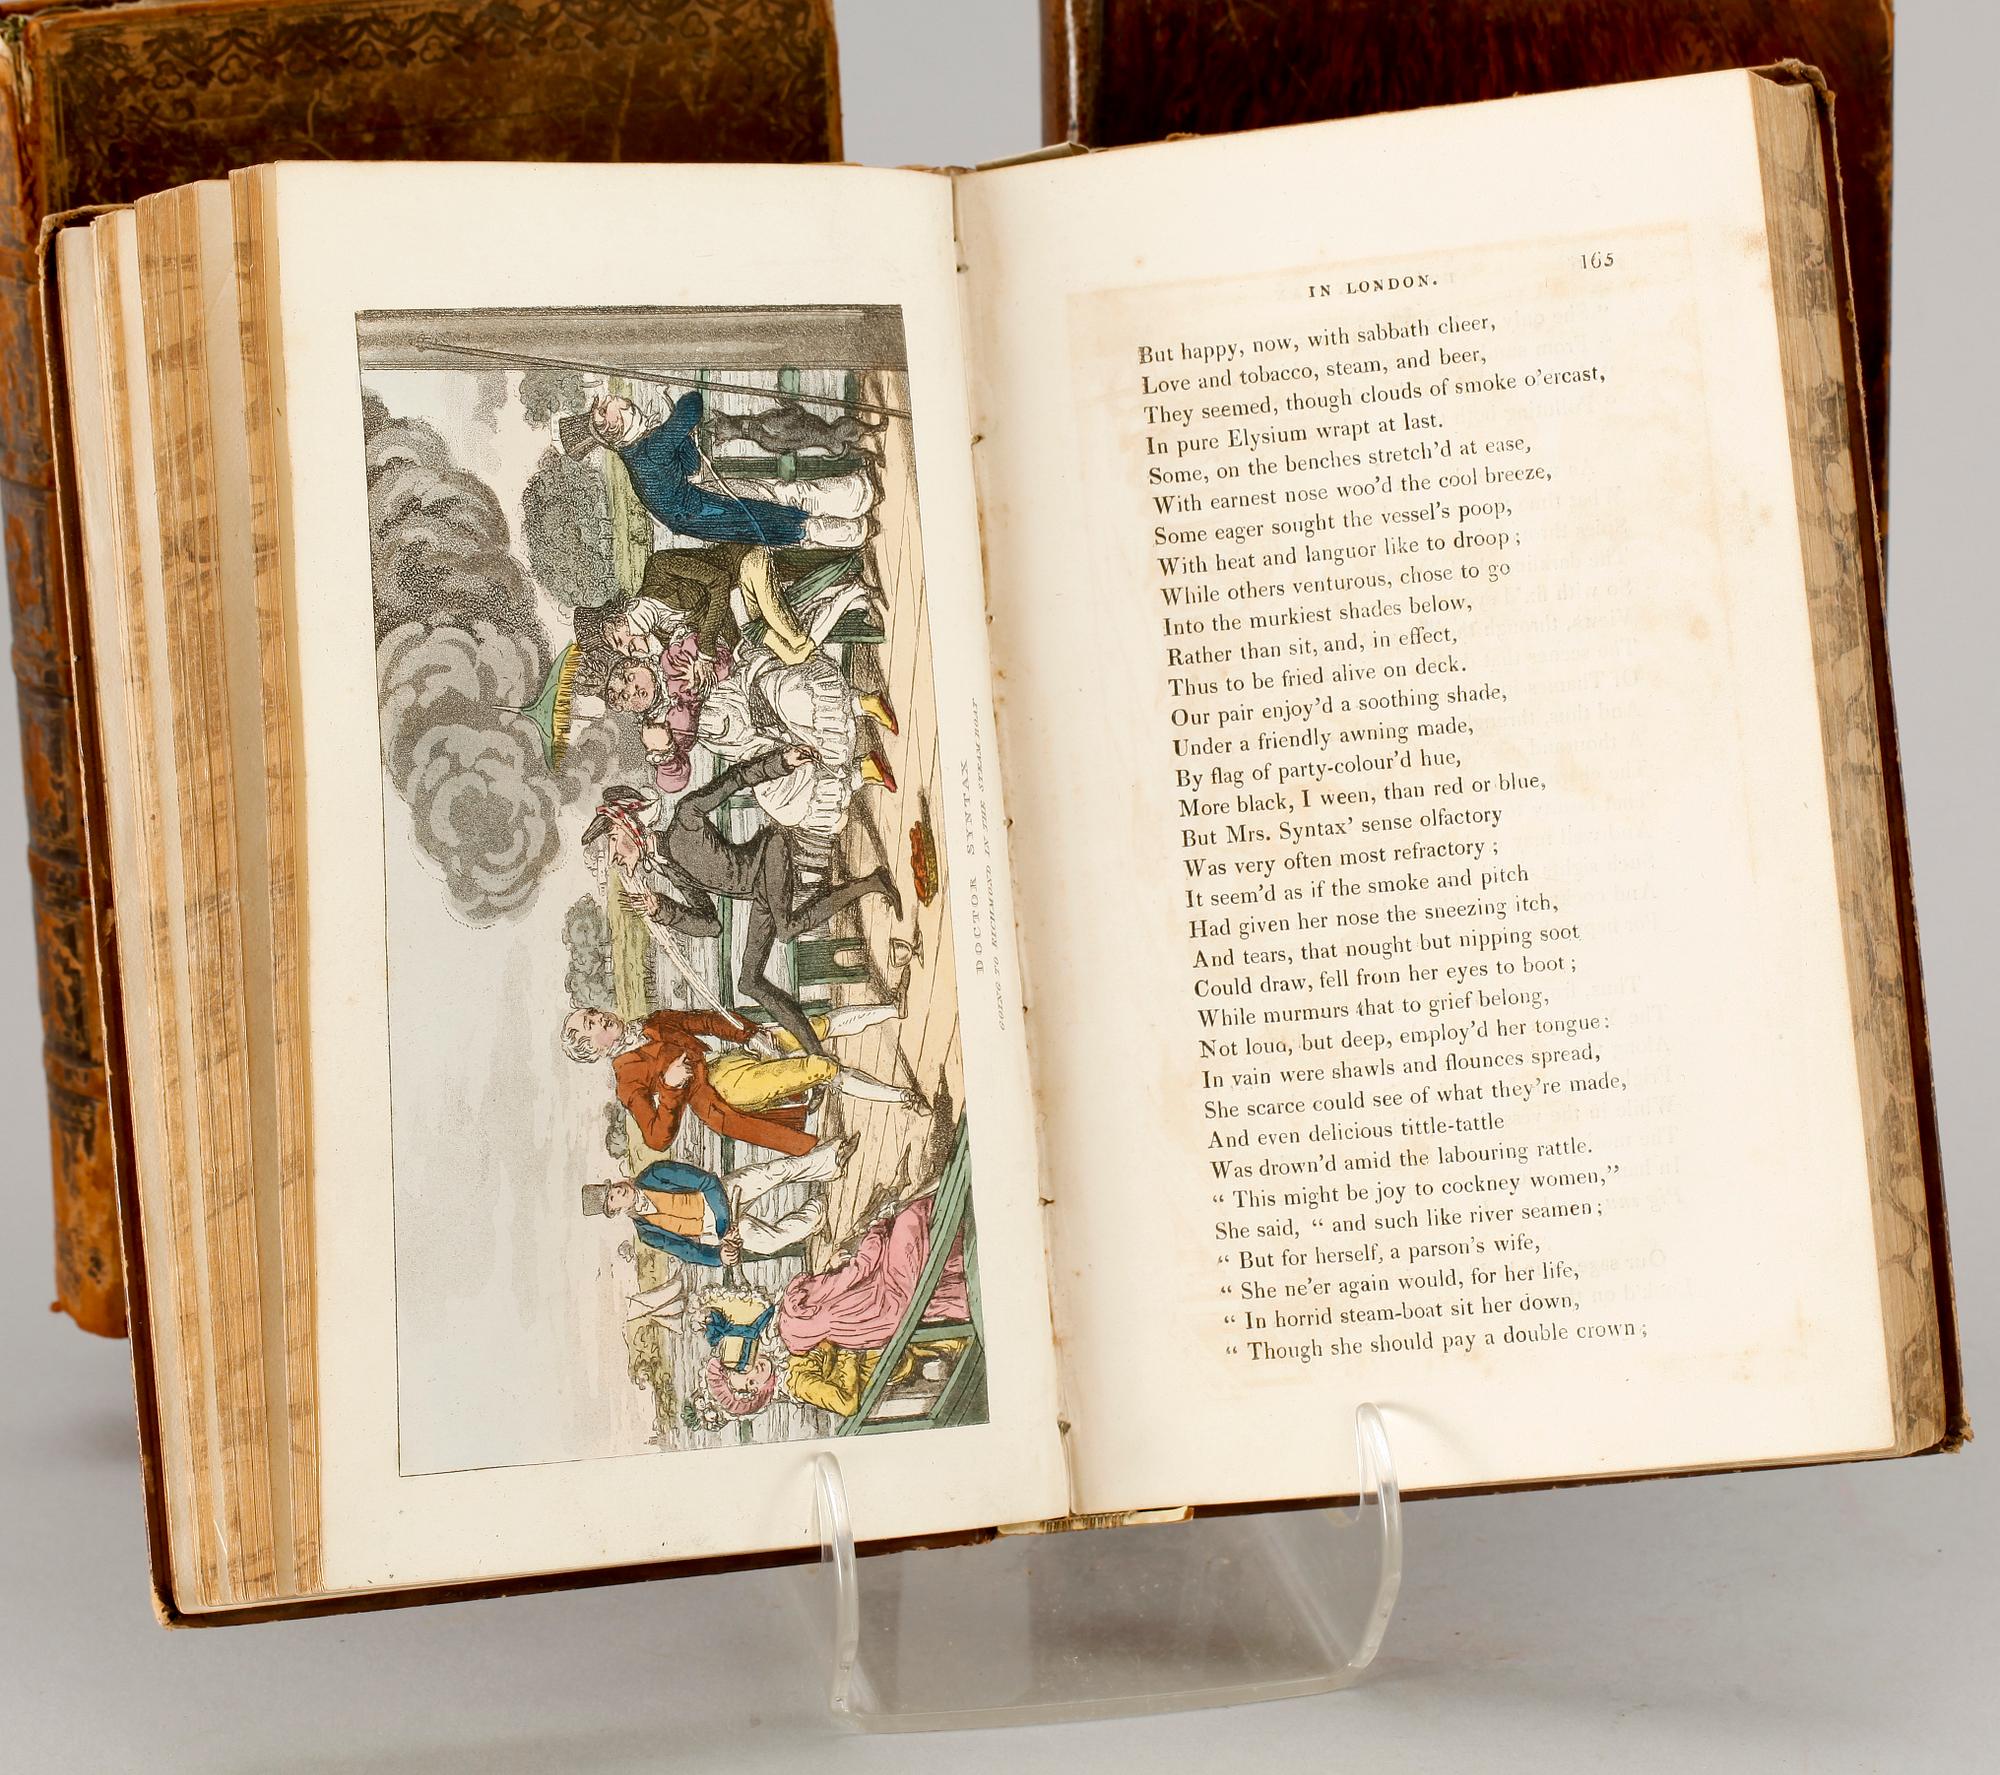 DOCTOR SYNTAX
GOING TO RICHMOND IN THE STEAM BOAT
IN LONDON. 165
But happy, now, with sabbath cheer,
Love and tobacco, steam, and beer,
They seemed, though clouds of smoke o'ercast,
In pure Elysium wrapt at last.
Some, on the benches stretch'd at ease,
With earnest nose woo'd the cool breeze,
Some eager sought the vessel's poop,
With heat and languor like to droop;
While others venturous, chose to go
Into the murkiest shades below,
Rather than sit, and, in effect,
Thus to be fried alive on deck.
Our pair enjoy'd a soothing shade,
Under a friendly awning made,
By flag of party-colour'd hue,
More black, I ween, than red or blue,
But Mrs. Syntax' sense olfactory
Was very often most refractory;
It seem'd as if the smoke and pitch
Had given her nose the sneezing itch,
And tears, that nought but nipping soot
Could draw, fell from her eyes to boot;
While murmurs that to grief belong,
Not loud, but deep, employ'd her tongue:
In vain were shawls and flounces spread,
She scarce could see of what they're made,
And even delicious tittle-tattle
Was drown'd amid the labouring rattle.
“ This might be joy to cockney women,”
She said, “ and such like river seamen;
“ But for herself, a parson's wife,
“ She ne'er again would, for her life,
“ In horrid steam-boat sit her down,
“ Though she should pay a double crown;